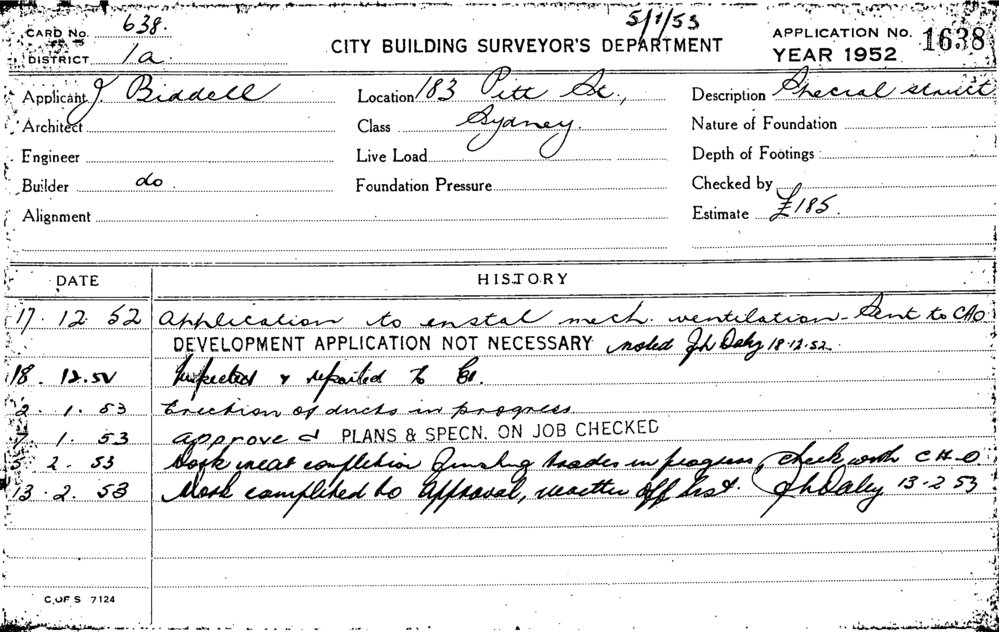 CARD No. 638.
5/1/53
CITY BUILDING SURVEYOR'S DEPARTMENT
APPLICATION No. 1638
DISTRICT 1a
YEAR 1952
Applicant J. Biddell
Location 183 Pitt St.,
Description Special struct
Architect
Class Sydney.
Nature of Foundation
Engineer
Live Load
Depth of Footings
Builder do
Foundation Pressure
Checked by
Alignment
Estimate £185.
DATE HISTORY
17. 12. 52 Application to instal mech. ventilation - Sent to CHO
DEVELOPMENT APPLICATION NOT NECESSARY noted JL Daley 18.12.52.
18. 12.52 Inspected & reported to
2. 1. 53 Erection of ducts in progress
7 1. 53 approved PLANS & SPECN. ON JOB CHECKED
5 2. 53 Work near completion finishing trades in progress, check with C.H.O.
13. 2. 53 Work completed to Approval, written off list. JL Daley 13-2 53
C. OF S 7124